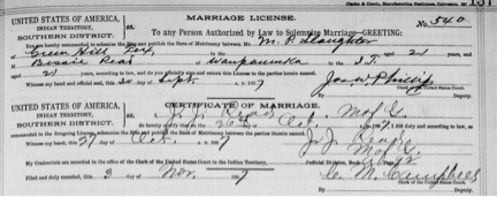 Clarke & Courts, Manufacturing Stationers, Galveston. 131
UNITED STATES OF AMERICA, MARRIAGE LICENSE. No. 540
INDIAN TERRITORY, ss. To any Person Authorized by Law to Solemnize Marriage—GREETING:
SOUTHERN DISTRICT.
You are hereby commanded to solemnize the Rite and publish the Banns of Matrimony between Mr. P. Slaughter
of in the I. T. aged 21 years,
and Bessie of Wapanucka in the I. T. aged
21 years, according to law, and do you officially sign and return this License to the parties herein named.
Witness my hand and official seal, this 30 day of Sept. A. D. 190 7 Jas. W. Phillips
Clerk of the United States Court.
By Deputy.
UNITED STATES OF AMERICA, CERTIFICATE OF MARRIAGE.
INDIAN TERRITORY, ss. J. J. M of G
SOUTHERN DISTRICT. do hereby certify that on the day of Oct. A. D. 190 7, I did duly and according to law, as
commanded in the foregoing License, solemnize the Rite and publish the Banns of Matrimony between the parties therein named.
Witness my hand, this 27 day of Oct. A. D. 190 7 J. J.
M of G
My Credentials are recorded in the office of the Clerk of the United States Court in the Indian Territory, Judicial Division, Book
Filed and duly recorded, this 3 day of Nov. 190 7 C. M. Campbell
Clerk of the United States Court.
By Deputy.